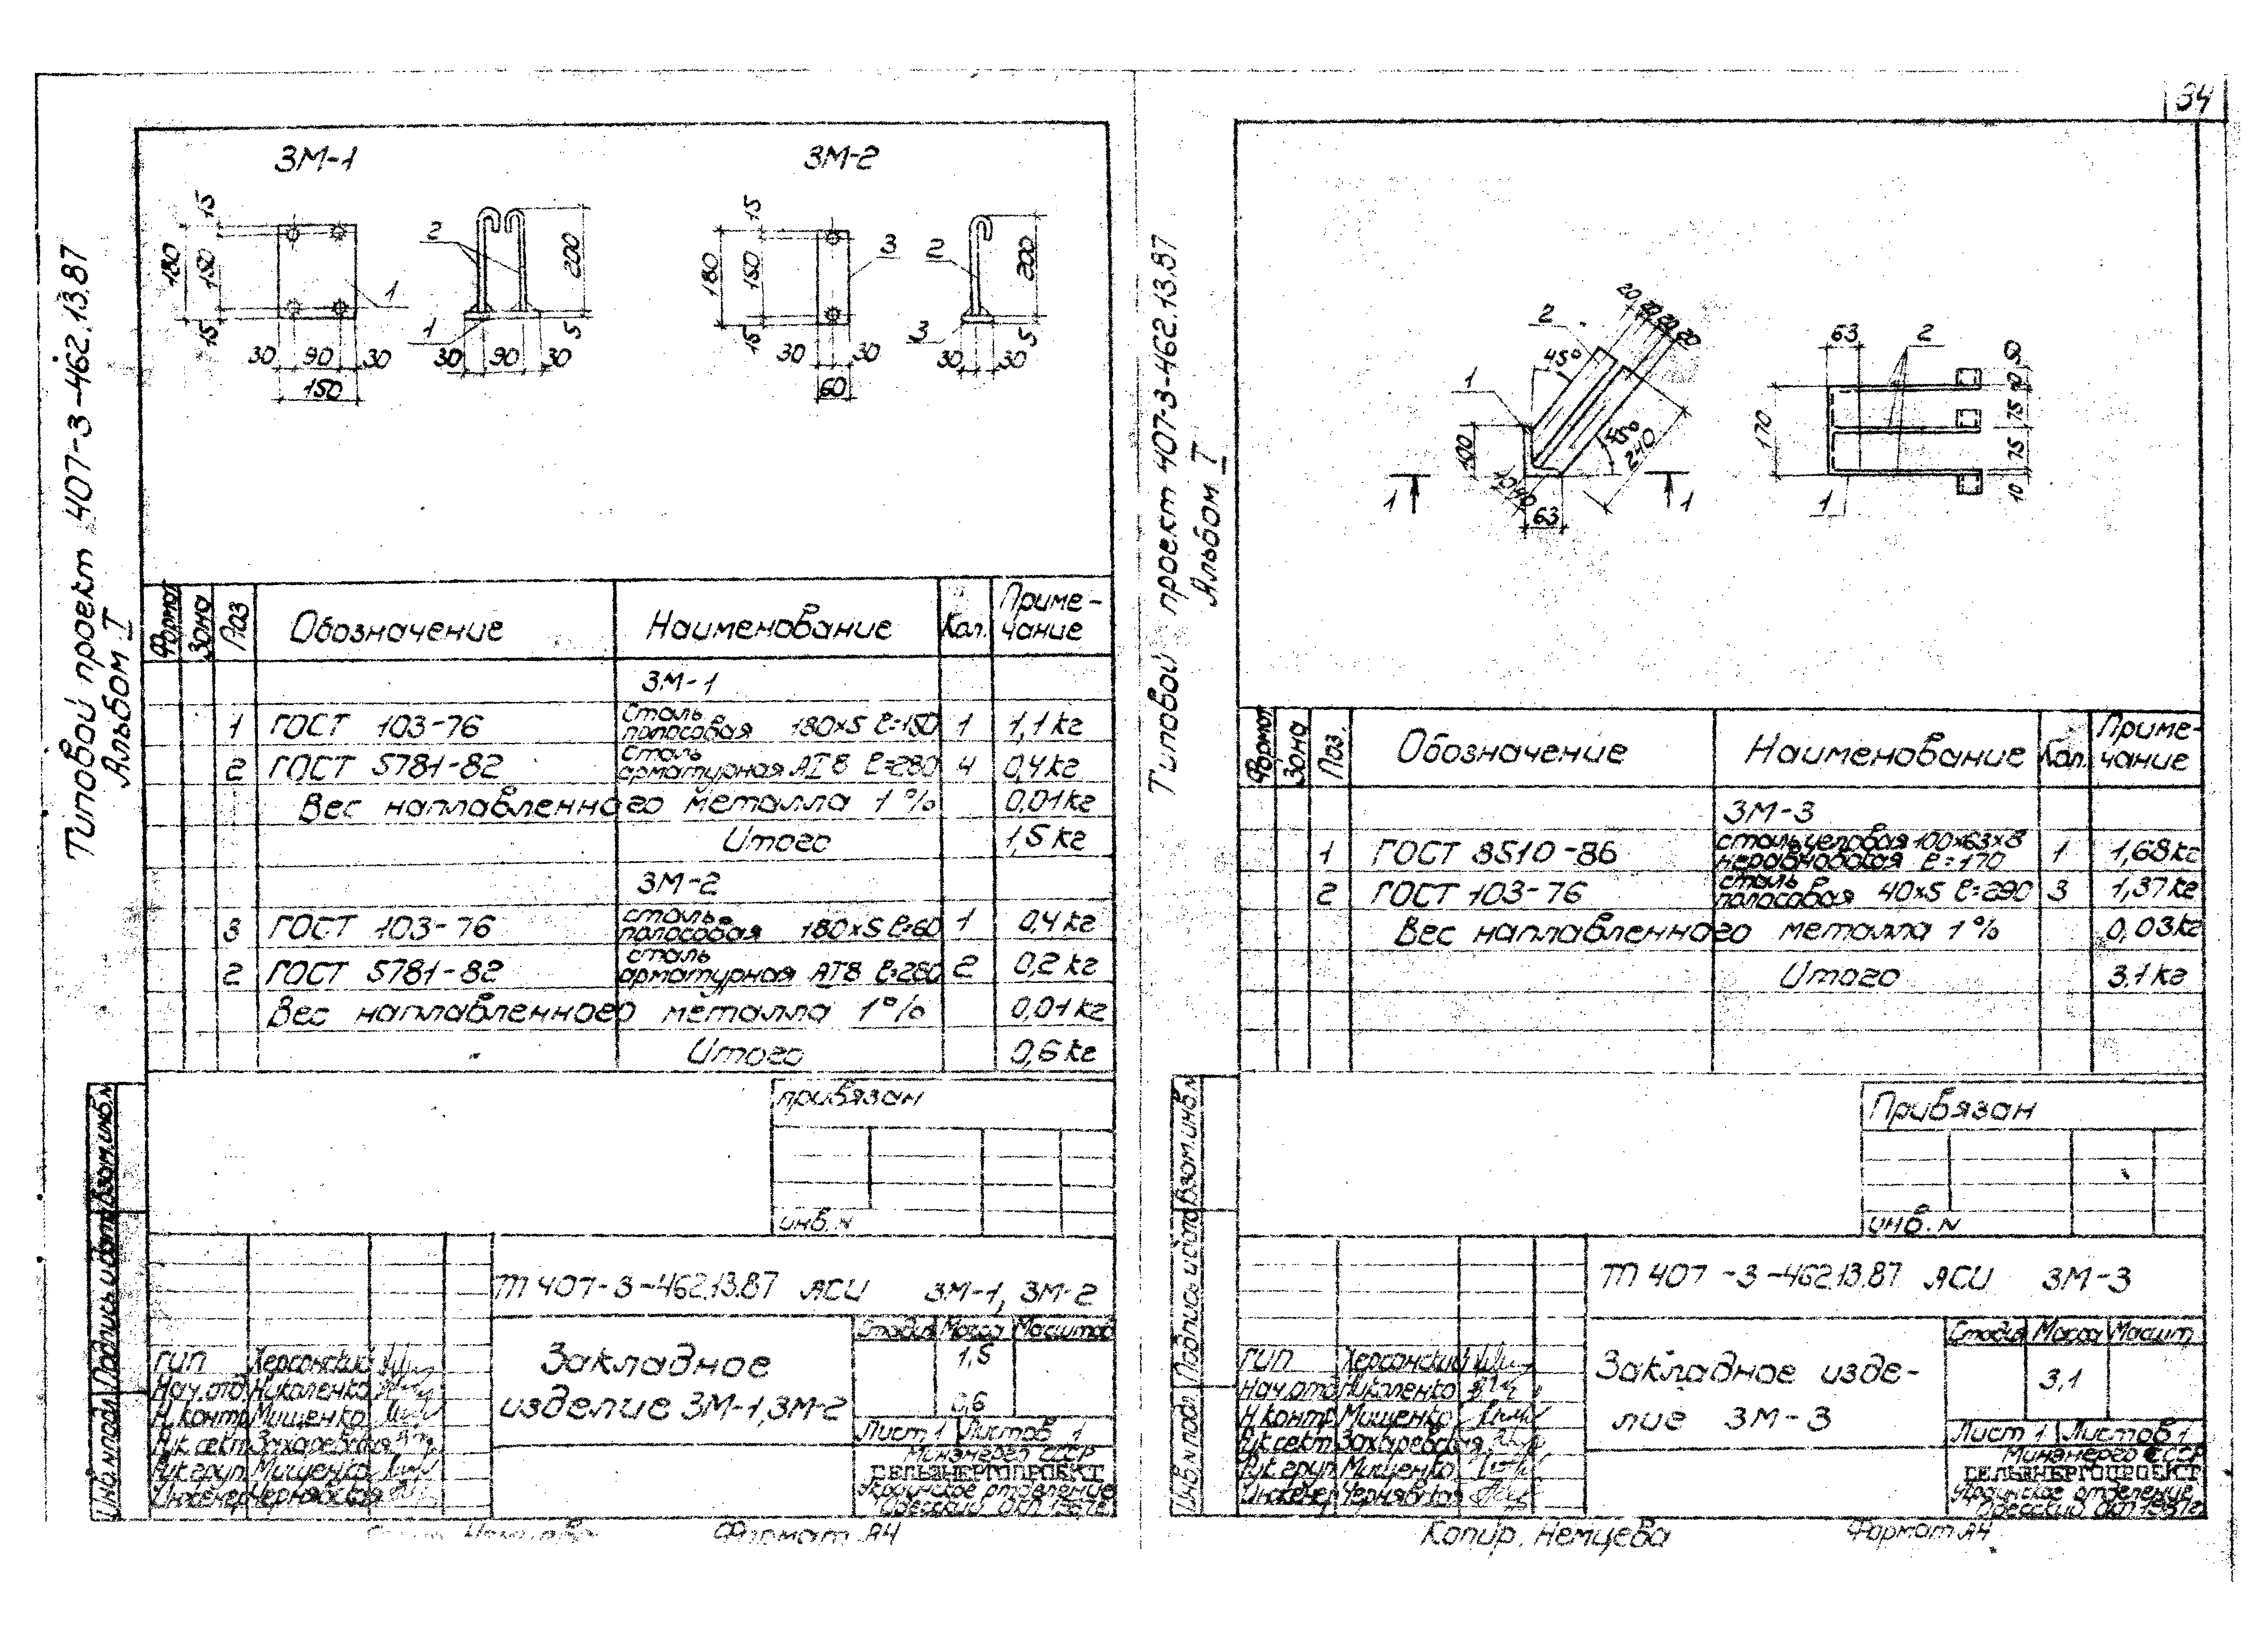 34
Типовой проект 407-3-462.13.87
Альбом I
ЗМ-1
ЗМ-2
15
180
150
15
30 90 30
150
1
2
200
5
1
30 90 30
15
180
150
15
30 30
60
3
2
200
5
3
30 30
Формат
Зона
Поз
Обозначение
Наименование
Кол.
Приме-
чание
ЗМ-1
1 ГОСТ 103-76 Сталь полосовая 180×5 ℓ=150 1 1,1 кг
2 ГОСТ 5781-82 Сталь арматурная АI8 ℓ=280 4 0,4 кг
Вес наплавленного металла 1% 0,01 кг
Итого 1,5 кг
ЗМ-2
3 ГОСТ 103-76 сталь полосовая 180×5 ℓ=60 1 0,4 кг
2 ГОСТ 5781-82 сталь арматурная АI8 ℓ=280 2 0,2 кг
Вес наплавленного металла 1% 0,01 кг
Итого 0,6 кг
привязан
инв. N
Инв.N подл Подпись и дата Взам.инв.N
ТП 407-3-462.13.87 АСИ ЗМ-1, ЗМ-2
Закладное
изделие ЗМ-1, ЗМ-2
Стадия Масса Масштаб
1,5
0,6
Лист 1 Листов 1
ГИП Херсонский
Нач.отд Николенко
Н.контр Мищенко
Рук.сект Захаревская
Рук.груп Мищенко
Инженер Чернявская
Минэнерго СССР
СЕЛЬЭНЕРГОПРОЕКТ
Украинское отделение
Одесский ОКП 1987г.
Формат А4
Типовой проект 407-3-462.13.87
Альбом I
20 20 20 20
2
45°
1
100
45°
240
63
1 1
63
2
170
75
75
10
1
Формат
Зона
Поз.
Обозначение
Наименование
Кол.
Приме-
чание
ЗМ-3
1 ГОСТ 8510-86 сталь угловая 100×63×8 неравнобокая ℓ=170 1 1,68 кг
2 ГОСТ 103-76 сталь полосовая 40×5 ℓ=290 3 1,37 кг
Вес наплавленного металла 1% 0,03 кг
Итого 3,1 кг
Привязан
инв. N
Инв.N подл Подпись и дата Взам.инв.N
ТП 407-3-462.13.87 АСИ ЗМ-3
Закладное изде-
лие ЗМ-3
Стадия Масса Масшт.
3,1
Лист 1 Листов 1
ГИП Херсонский
Нач.отд Николенко
Н.контр Мищенко
Рук.сект Захаревская
Рук.груп Мищенко
Инженер Чернявская
Минэнерго СССР
СЕЛЬЭНЕРГОПРОЕКТ
Украинское отделение
Одесский ОКП 1987г
Копир. Немцева Формат А4